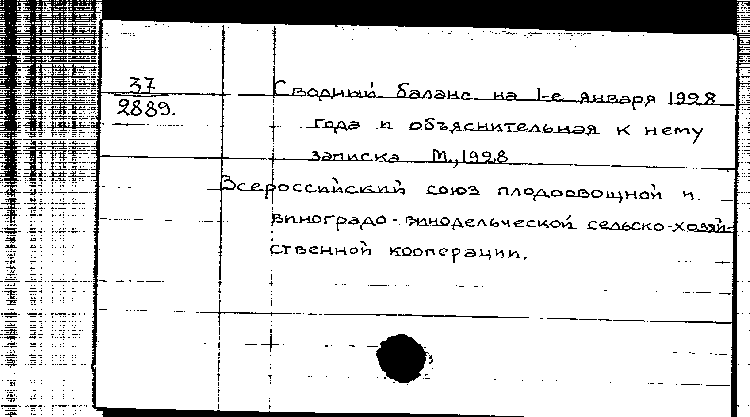 37
2889.
Сводный баланс на 1-е января 1928
года и объяснительная к нему
записка М.,1928
Всероссийский союз плодоовощной и
виноградо-винодельческой сельско-хозяй-
ственной кооперации.